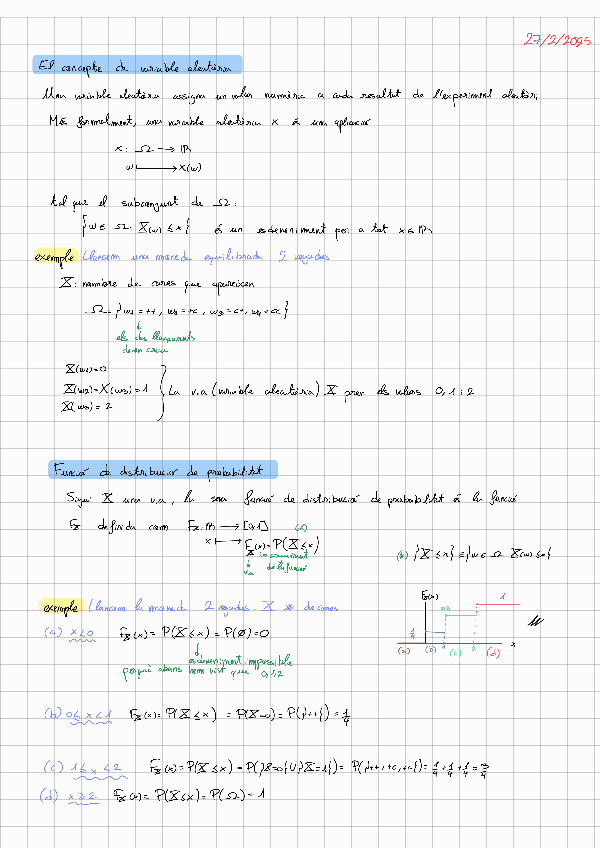 27/2/2025
El concepte de variable aleatòria
Una variable aleatòria assigna un valor numèric a cada resultat de l'experiment aleatori.
Més formalment, una variable aleatòria X és una aplicació
X: Ω → ℝ
ω ↦ X(ω)
tal que el subconjunt de Ω:
{ω∈Ω: X(ω) ≤ x} és un esdeveniment per a tot x∈ℝ
exemple Llancem una moneda equilibrada 2 vegades
X: nombre de cares que apareixen
Ω={ω1=++, ω2=+c, ω3=c+, ω4=cc}
els dos llançaments
X(ω1)=0
X(ω2)=X(ω3)=1
X(ω4)=2
La v.a (variable aleatòria) X pren els valors 0,1 i 2
Funció de distribució de probabilitat
Sigui X una v.a, la seva funció de distribució de probabilitat és la funció
FX definida com FX: ℝ → [0,1] (*)
x ↦ FX(x)=P(X≤x)
v.a. de la funció
(*) {X≤x}≡{ω∈Ω X(ω)≤x}
exemple Llancem la moneda 2 vegades. X # de cares
(a) x<0 FX(x)=P(X≤x)=P(∅)=0
esdeveniment impossible
perquè abans hem vist que 0,1,2
FX(x)
1
3/4
1/4
1 2 x
(a) (b) (c) (d)
(b) 0≤x<1 FX(x)=P(X≤x)=P(X=0)=P({++})=1/4
(c) 1≤x<2 FX(x)=P(X≤x)=P({X=0}∪{X=1})=P({++,+c,c+})=1/4+1/4+1/4=3/4
(d) x≥2 FX(x)=P(X≤x)=P(Ω)=1